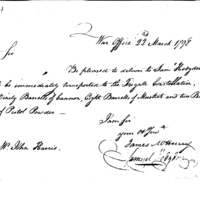 War Office 22d March 1798
Sir
Be pleased to deliver to Sam Hodgdon
to be immediately transported to the Frigate Constellation,
Barrells of Cannon, Eight Barrels of Musket and two Barrels
of Pistol Powder
I am Sir
your Ob Serv
James McHenry
Mr John Harris
Samuel Hodgdon